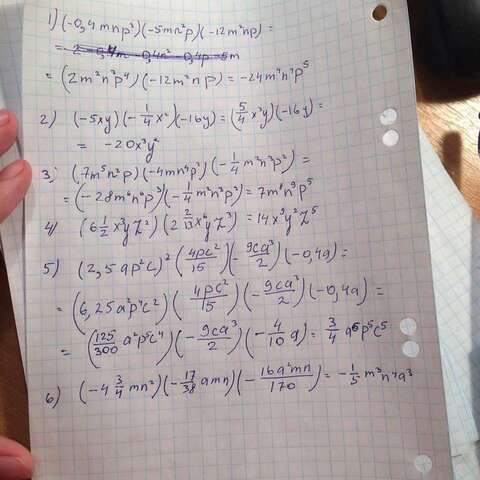 1) (-0,4 mnp³)(-5mn²p)(-12m²np) =
= (2m²n³p⁴)(-12m²np) = -24m⁴n⁴p⁵
2) (-5xy)(-1/4 x²)(-16y) = (5/4 x³y)(-16y) =
= -20x³y²
3) (7m⁵n²p)(-4mn⁴p²)(-1/4 m²n³p²) =
= (-28m⁶n⁶p³)(-1/4 m²n³p²) = 7m⁸n⁹p⁵
4) (6 1/2 x³yz²)(2 2/13 x⁶yz³) = 14x⁹y²z⁵
5) (2,5ap²c)² (4pc²/15)(-9ca³/2)(-0,4a) =
= (6,25a²p⁴c²)(4pc²/15)(-9ca³/2)(-0,4a) =
= (125/300 a²p⁵c⁴)(-9ca³/2)(-4/10 a) = 3/4 a⁶p⁵c⁵
6) (-4 3/4 mn²)(-17/38 amn)(-16a²mn/170) = -1/5 m³n⁴a³